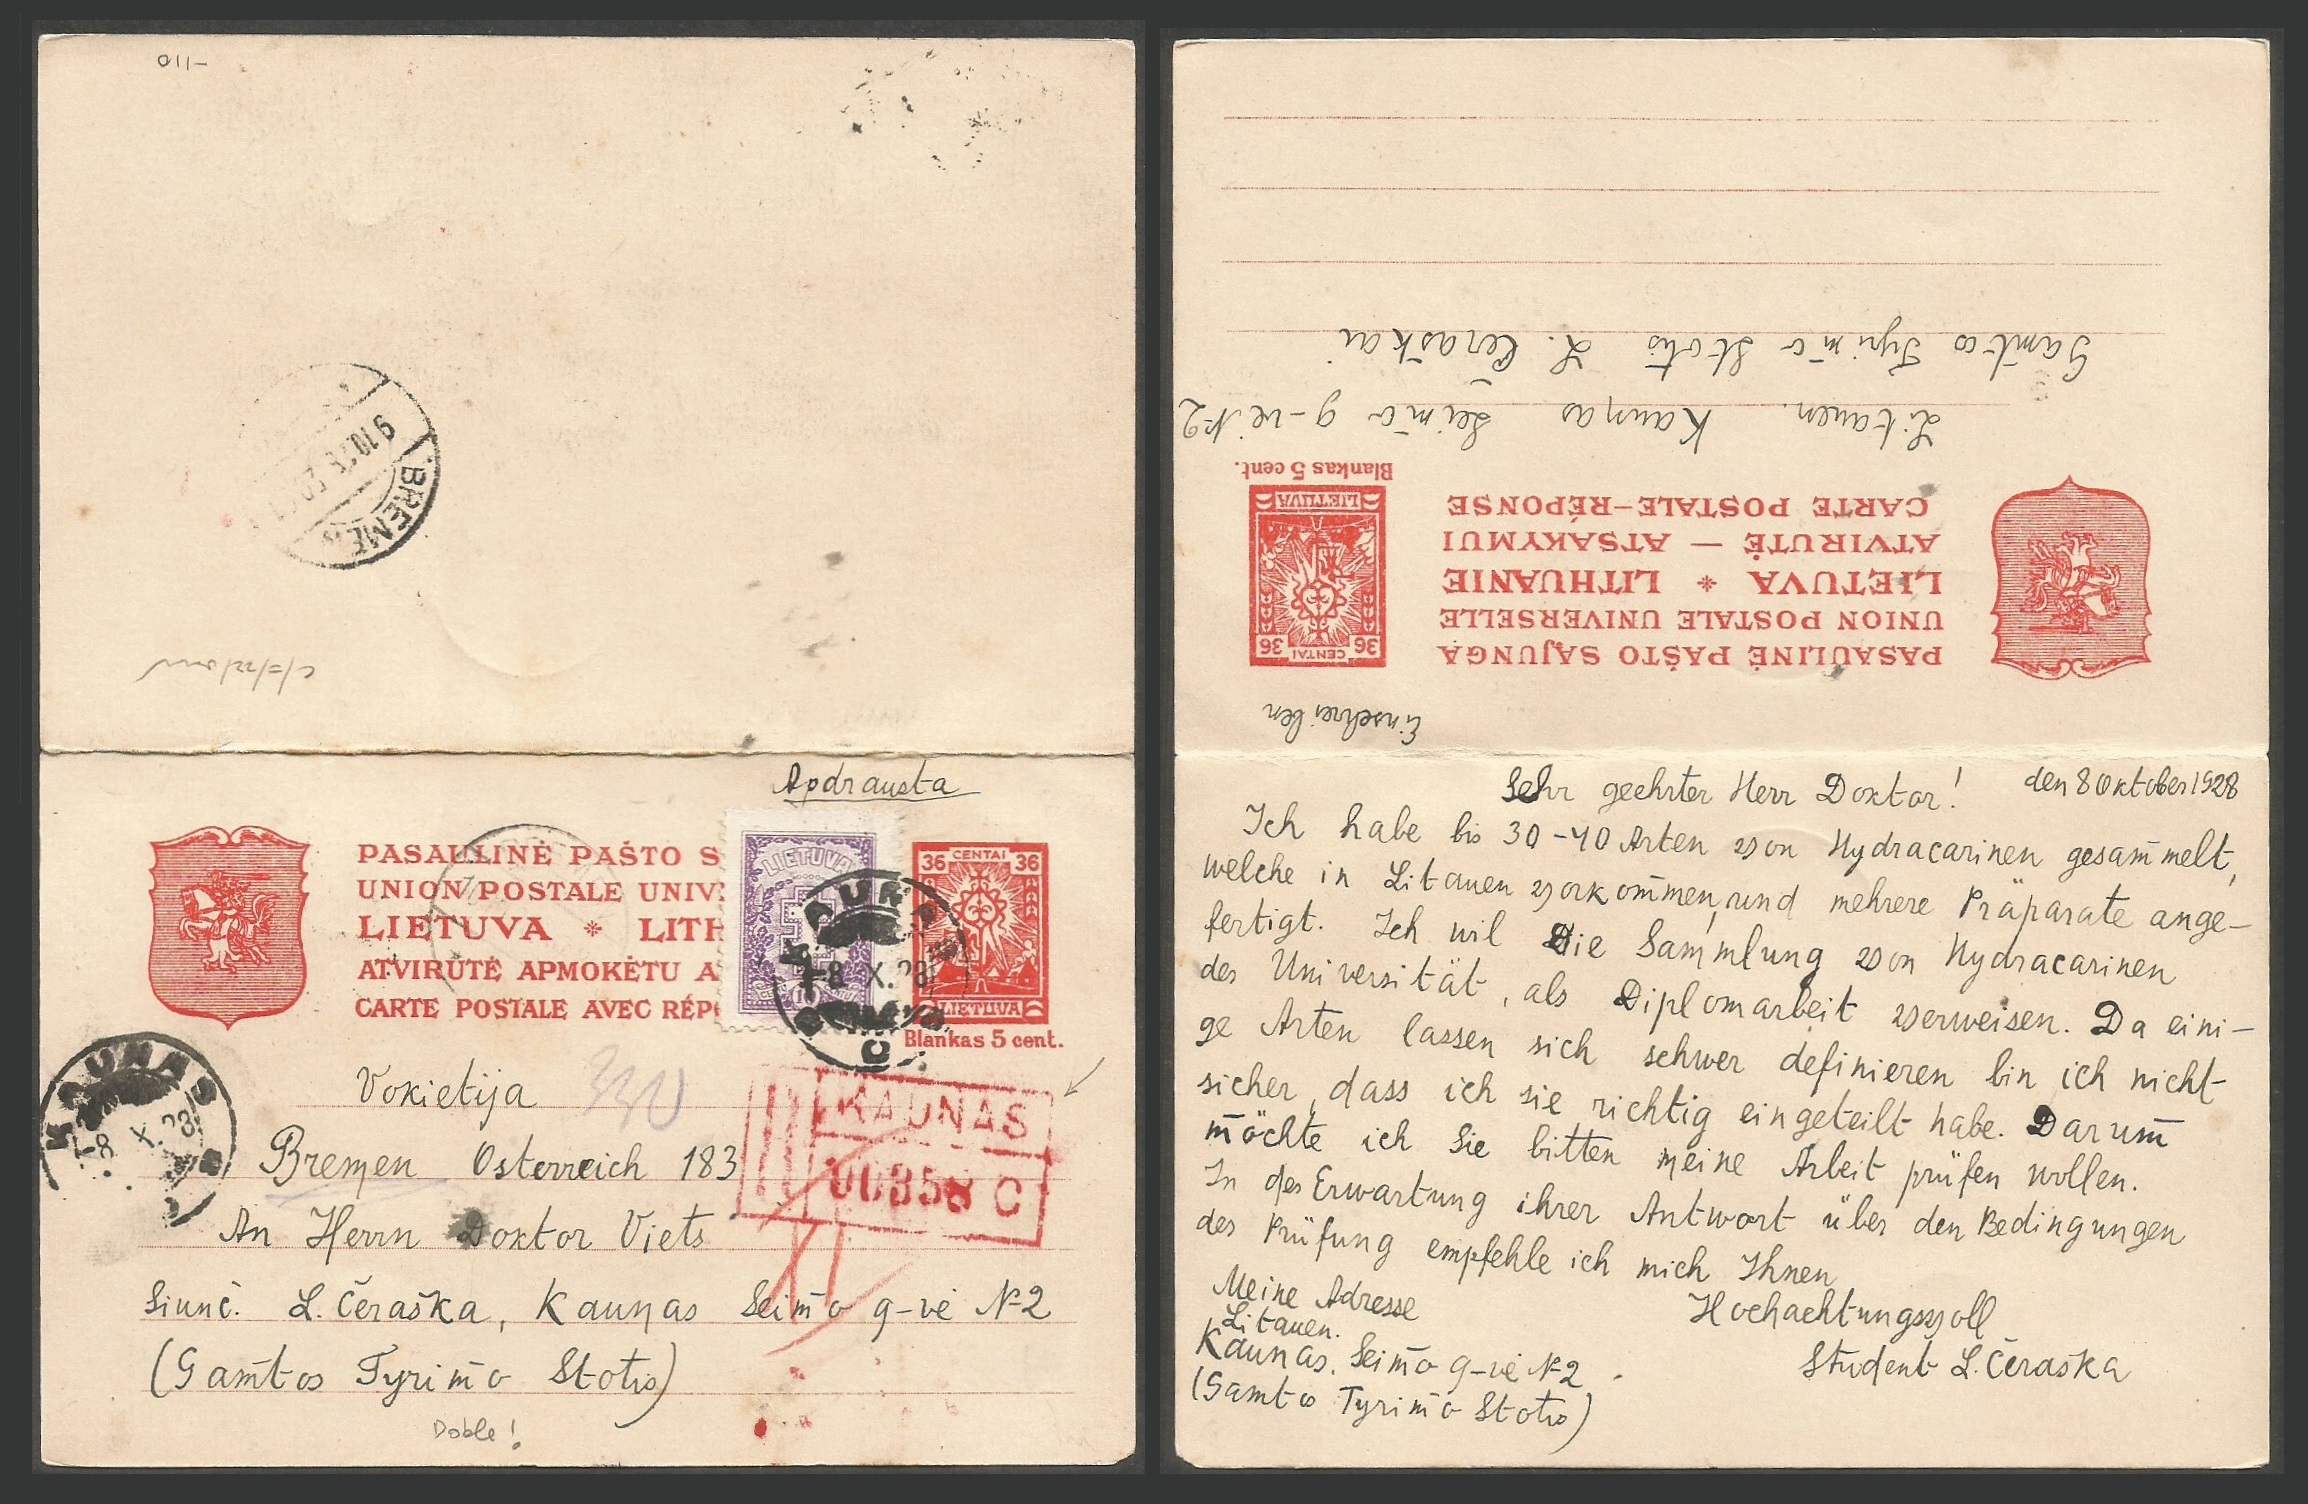 -110
BREMEN
9.10.28
Apdrausta
PASAULINĖ PAŠTO S
UNION POSTALE UNIV
LIETUVA * LITH
ATVIRUTĖ APMOKĖTU A
CARTE POSTALE AVEC RÉP
LIETUVA
36 CENTAI 36
LIETUVA
Blankas 5 cent.
KAUNAS
-8 X. 28
C
KAUNAS
-8 X. 28
330
KAUNAS
00358 C
Vokietija
Bremen Osterreich 183
An Herrn Doktor Viets
Siunč. L. Čeraška, Kaunas Seimo g-vė №2
(Gamtos Tyrimo Stotis)
Doble!
Einschreiben
PASAULINĖ PAŠTO SĄJUNGA
UNION POSTALE UNIVERSELLE
LIETUVA * LITHUANIE
ATVIRUTĖ — ATSAKYMUI
CARTE POSTALE-RÉPONSE
36 CENTAI 36
LIETUVA
Blankas 5 cent.
Litauen. Kaunas Seimo g-vė №2
Gamtos Tyrimo Stotis L. Čeraškai
Sehr geehrter Herr Doktor! den 8 Oktober 1928
Ich habe bis 30-40 Arten von Hydracarinen gesammelt,
welche in Litauen vorkommen, und mehrere Präparate ange-
fertigt. Ich wil Die Sammlung von Hydracarinen
der Universität, als Diplomarbeit verweisen. Da eini-
ge Arten lassen sich schwer definieren bin ich nicht
sicher, dass ich sie richtig eingeteilt habe. Darum
möchte ich Sie bitten meine Arbeit prüfen wollen.
In der Erwartung ihrer Antwort über den Bedingungen
der Prüfung empfehle ich mich Ihnen
Hochachtungsvoll
Student L. Čeraška
Meine Adresse
Litauen.
Kaunas. Seimo g-vė №2
(Gamtos Tyrimo Stotis)